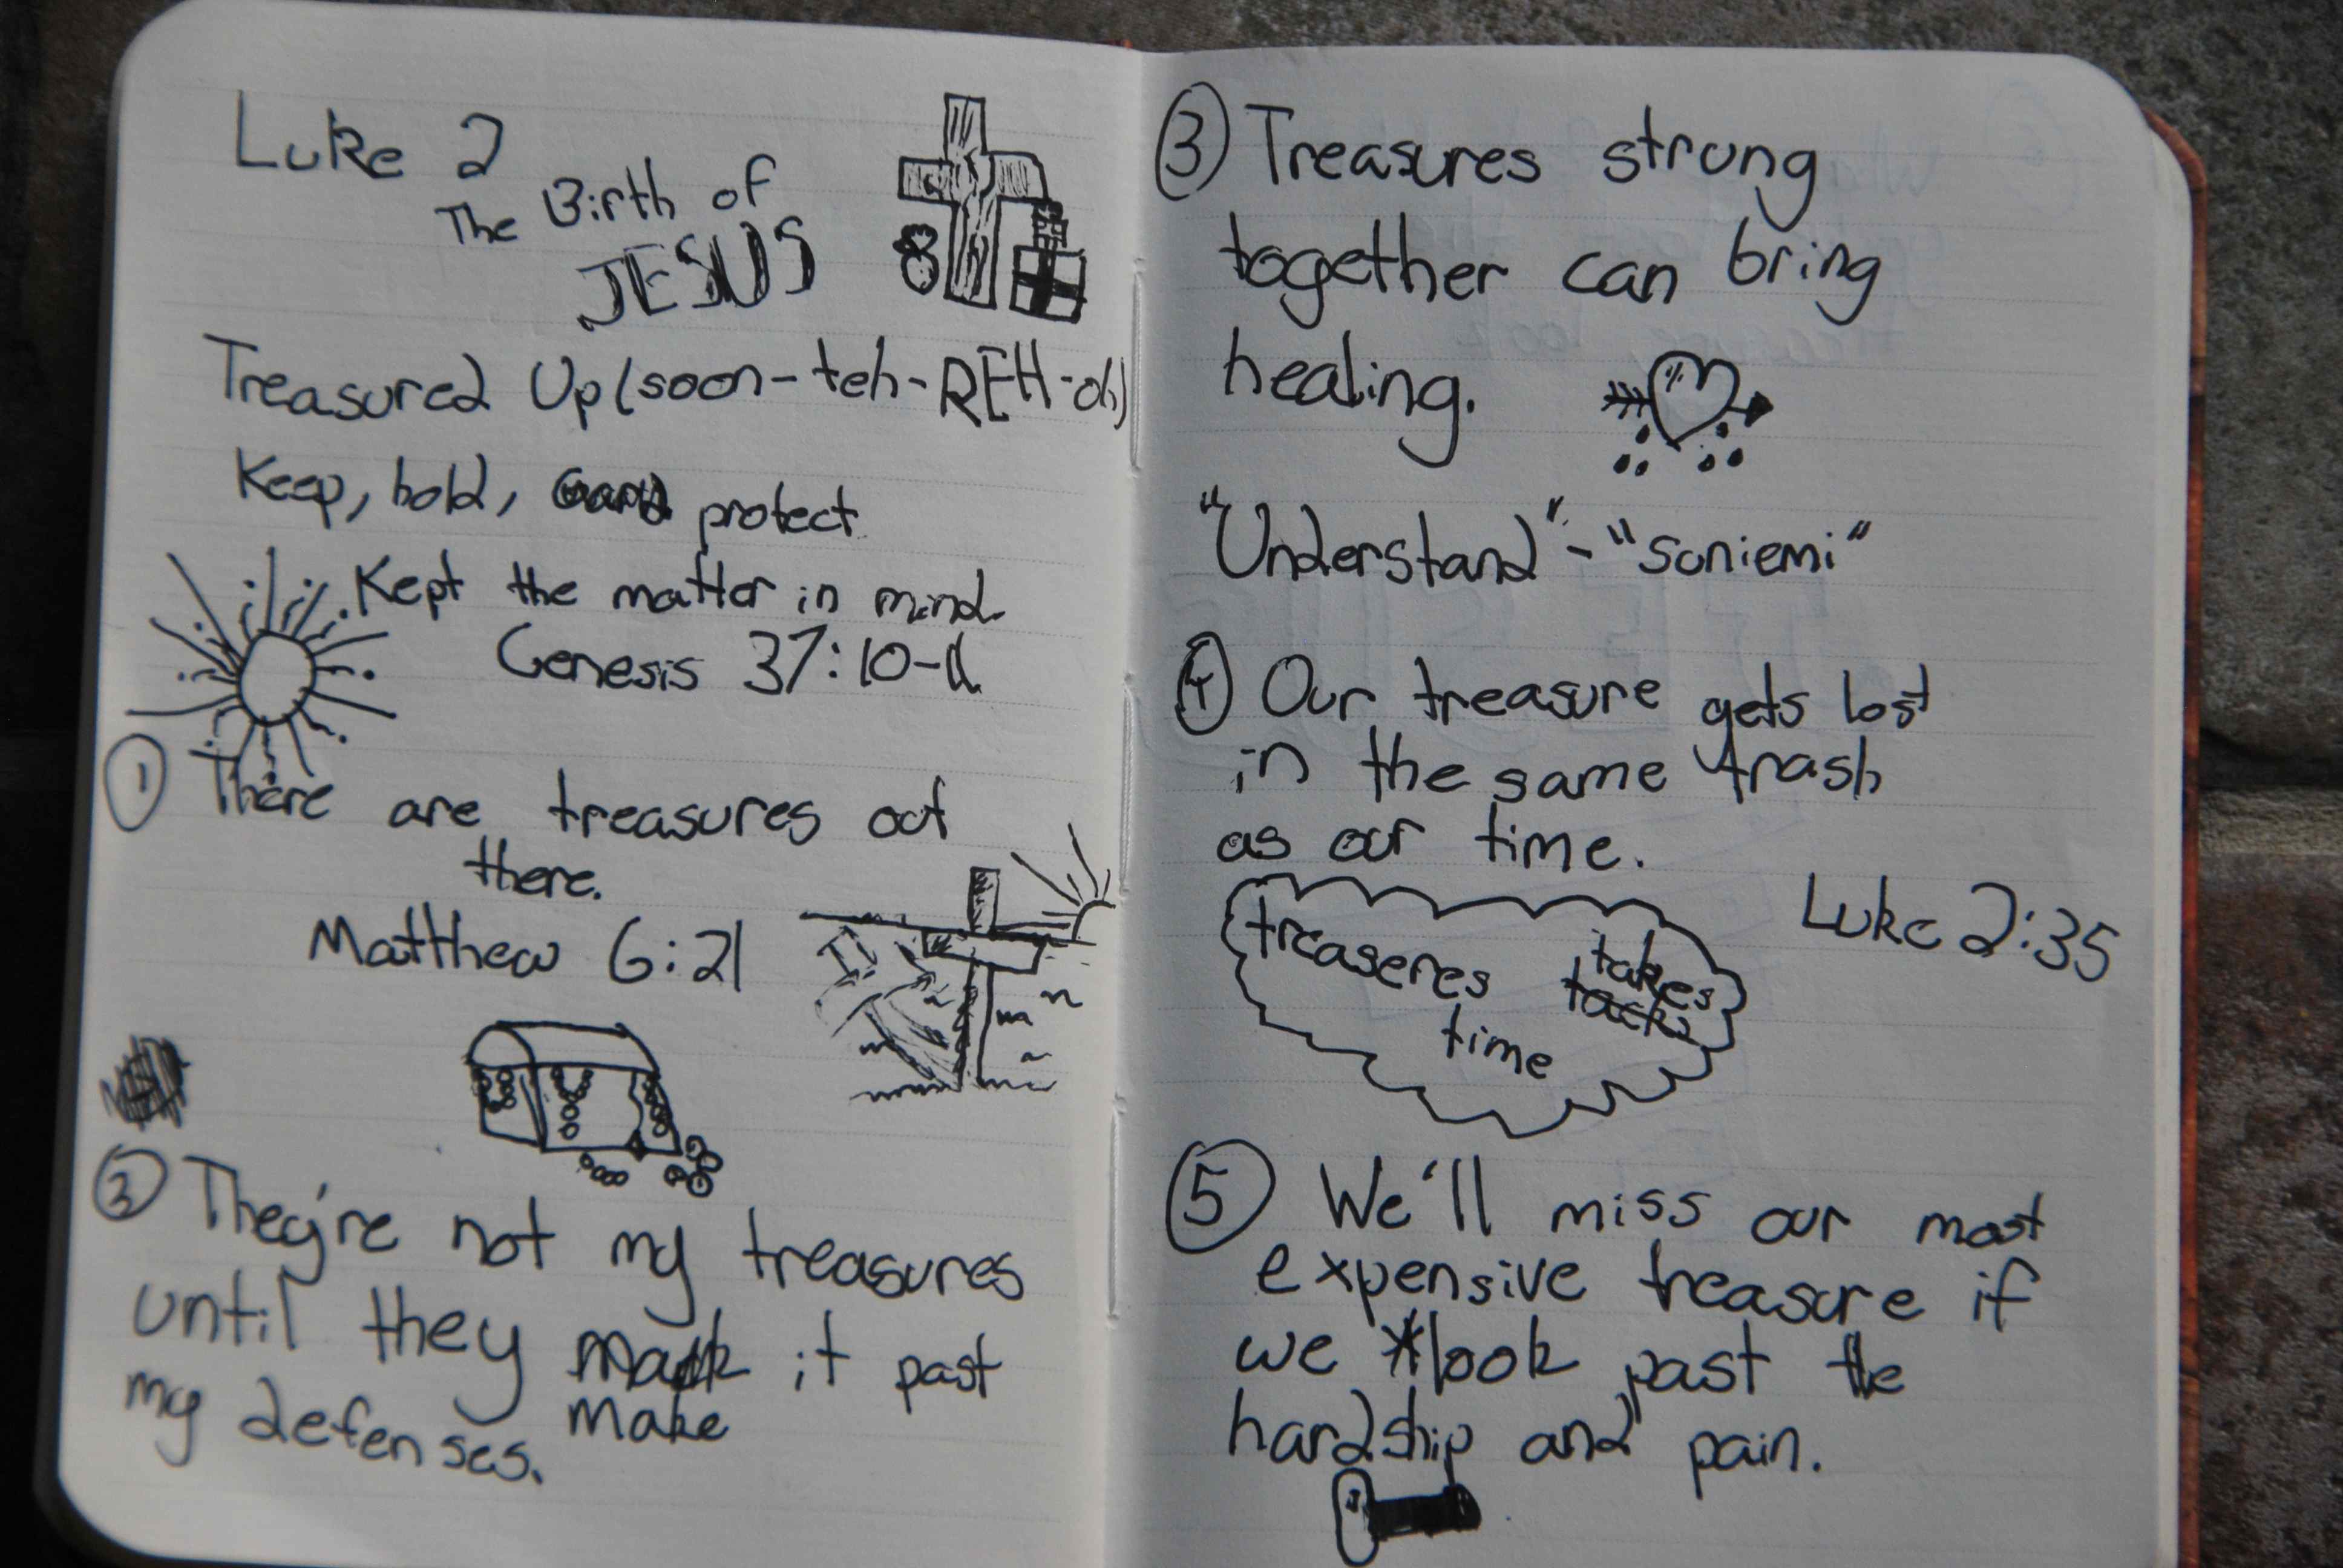 Luke 2
The Birth of
JESUS
Treasured Up (soon-teh-REH-oh)
Keep, hold, protect
Kept the matter in mind.
Genesis 37:10-11
1 There are treasures out
there.
Matthew 6:21
2 They're not my treasures
until they it past
make
my defenses.
3 Treasures strung
together can bring
healing.
"Understand" - "suniemi"
4 Our treasure gets lost
in the same trash
as our time.
Luke 2:35
treaseres takes
time
5 We'll miss our most
expensive treasure if
we look past the
hardship and pain.